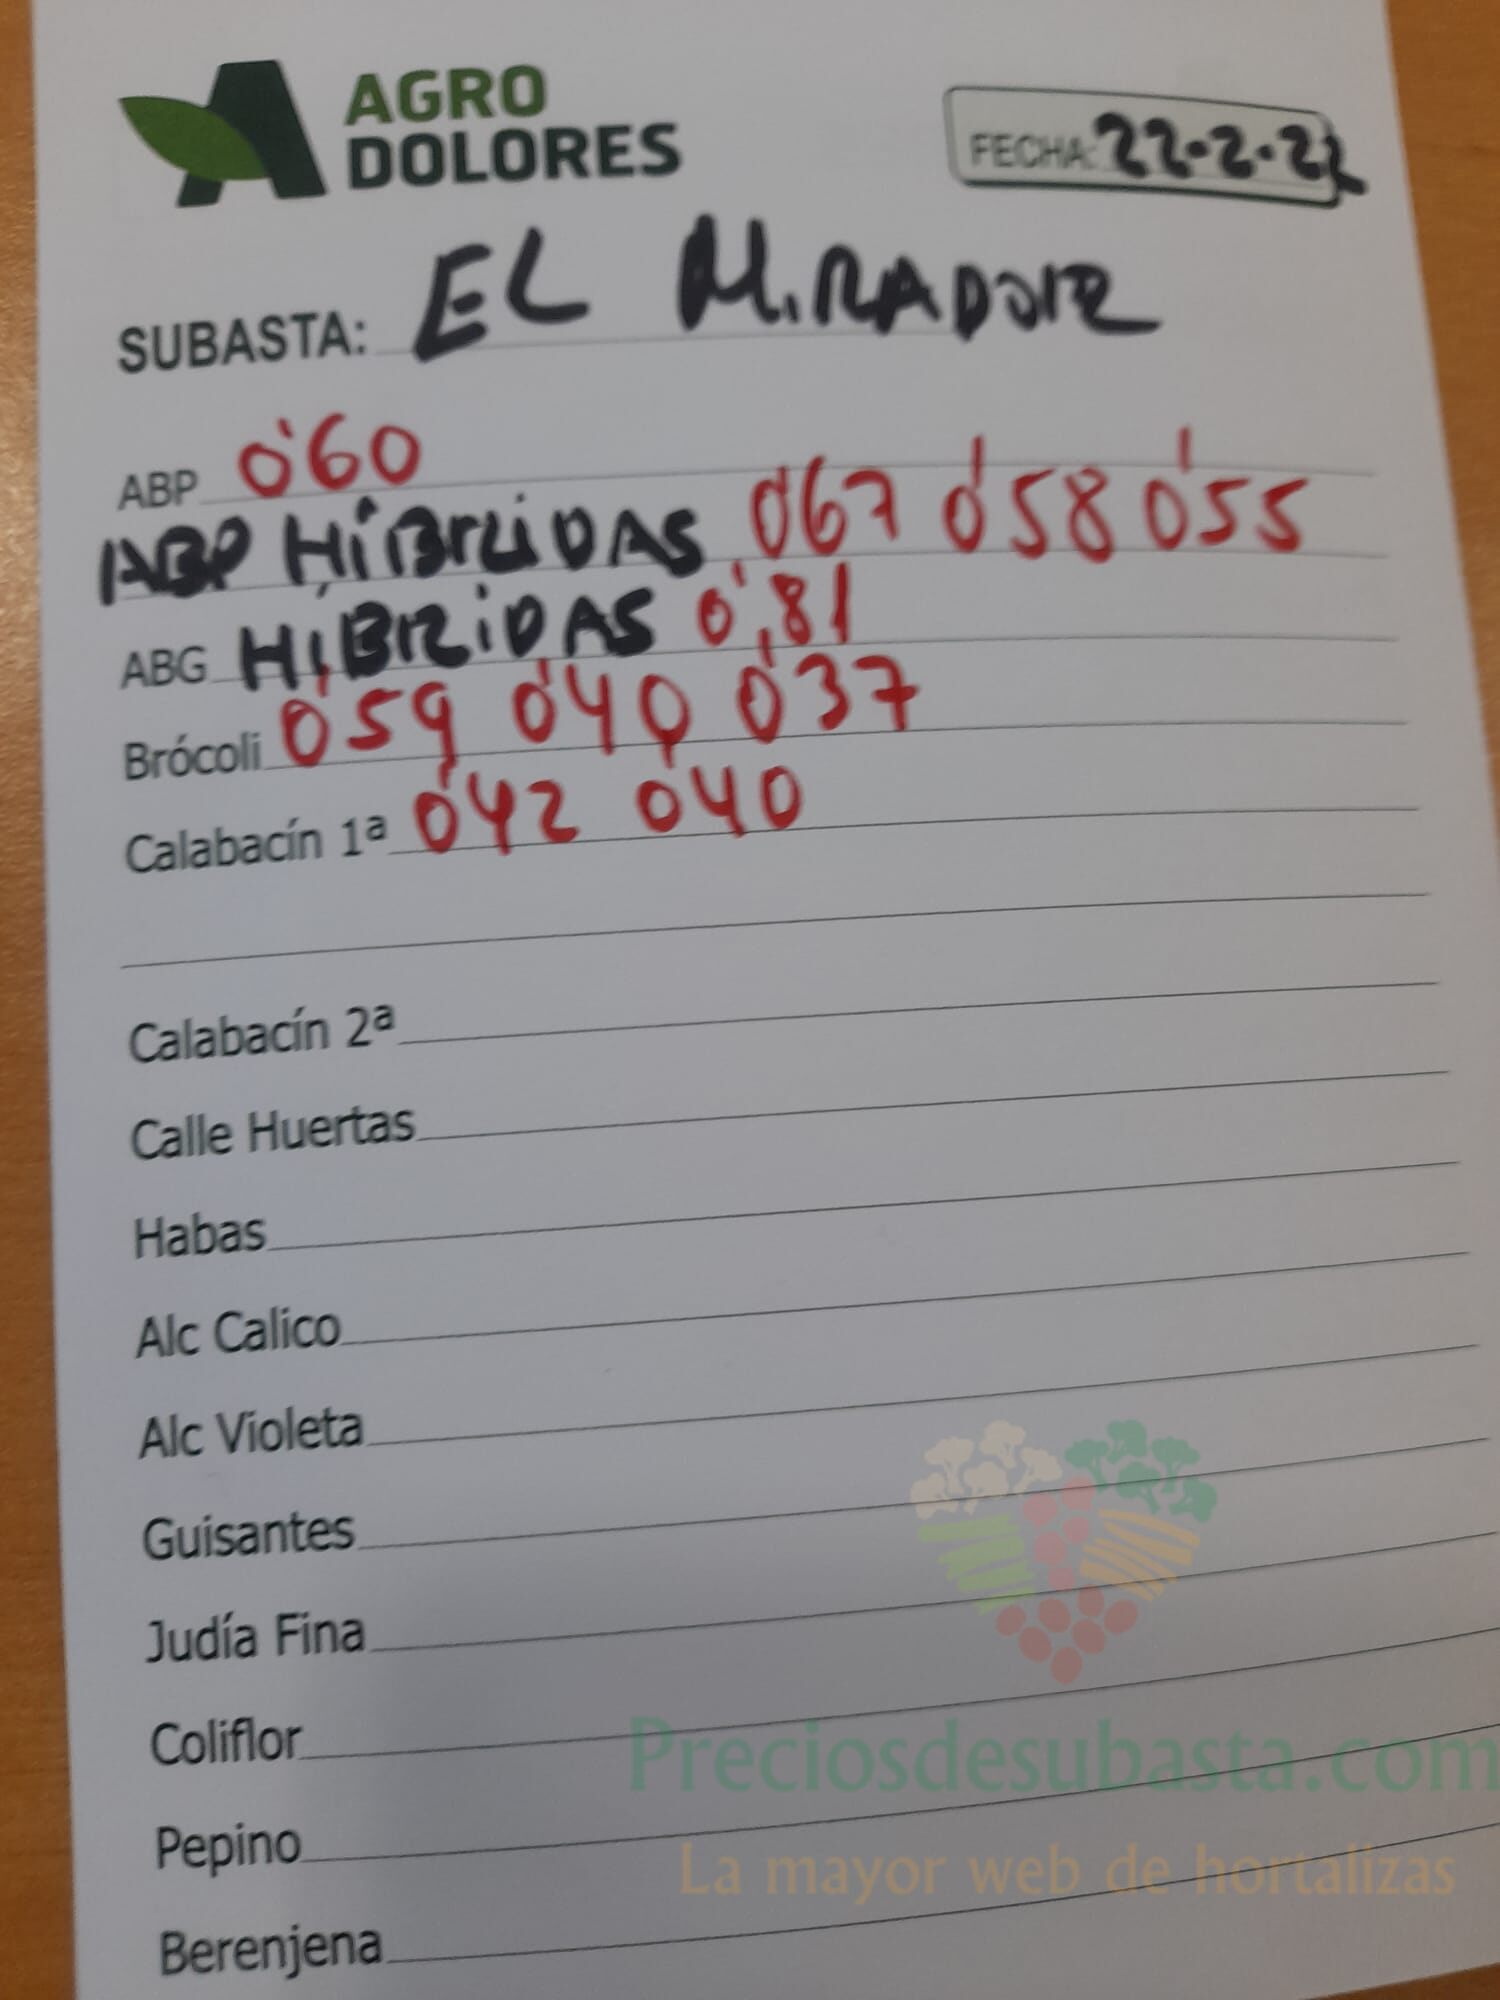 AGRO
DOLORES
FECHA: 22-2-22
SUBASTA: EL MIRADOR
ABP 0'60
ABP HÍBRIDAS 0'67 0'58 0'55
ABG HIBRIDAS 0'81
Brócoli 0'59 0'40 0'37
Calabacín 1ª 0'42 0'40
Calabacín 2ª
Calle Huertas
Habas
Alc Calico
Alc Violeta
Guisantes
Judía Fina
Coliflor
Preciosdesubasta.com
Pepino
La mayor web de hortalizas
Berenjena